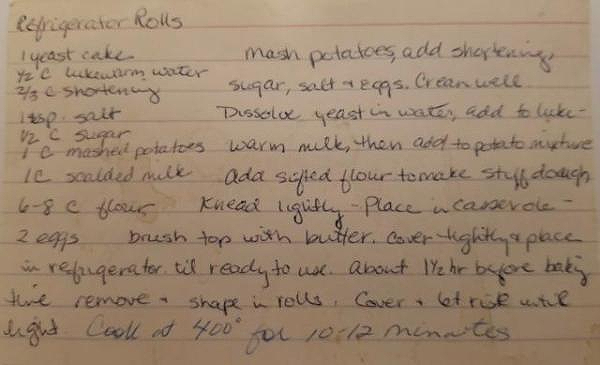 Refrigerator Rolls
1 yeast cake mash potatoes, add shortening,
1/2 C lukewarm water
2/3 C shortening sugar, salt + eggs. Cream well.
1 tsp. salt Dissolve yeast in water, add to luke-
1/2 C sugar
1 C mashed potatoes warm milk, then add to potato mixture
1 C scalded milk add sifted flour to make stiff dough
6-8 C flour Knead lightly - Place in casserole -
2 eggs brush top with butter. Cover tightly & place
in refrigerator til ready to use. About 1 1/2 hr before baking
time remove + shape in rolls. Cover + let rise until
light. Cook at 400° for 10-12 minutes